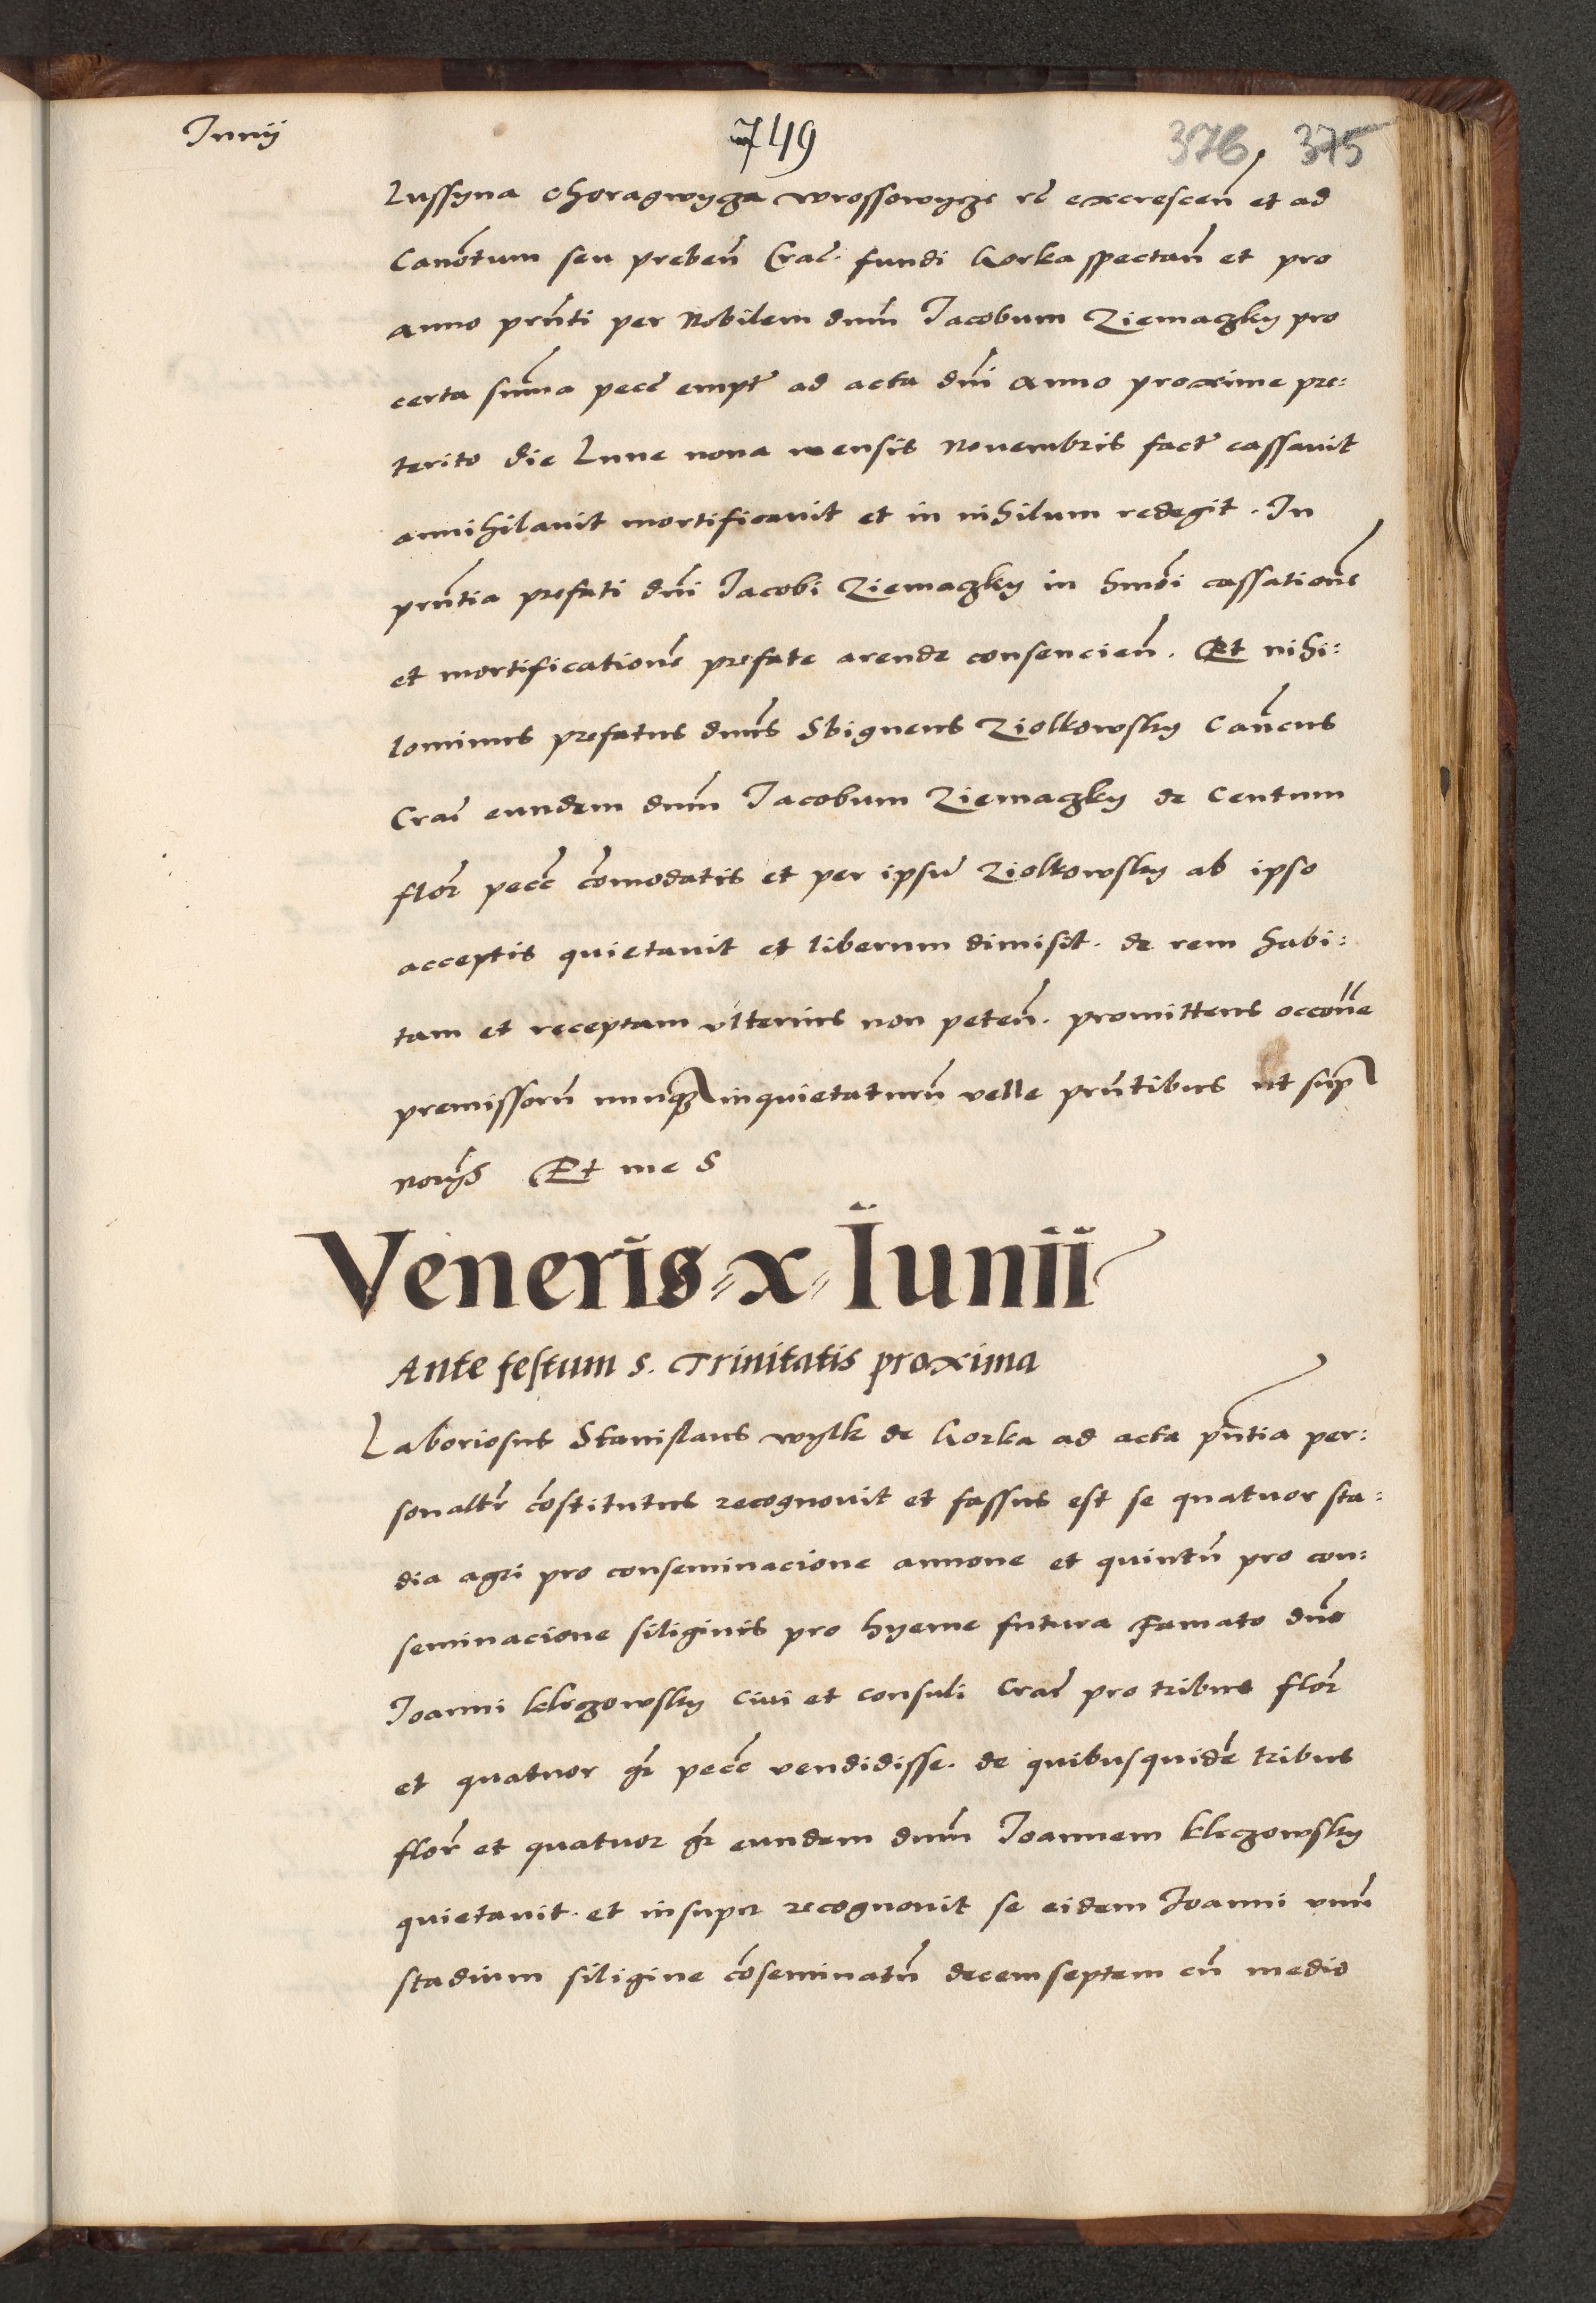 Junij 749 376, 375
Lussyna choragwycza wrossowycze rc̄ excrescen̄ et ad
Canōtum seu preben̄ Crac̄. fundi Gorka spectan̄ et pro
anno prn̄ti per Nobilem dnm̄ Jacobum Ziemaczky pro
certa sum̄a pecc̄ empt̄ ad acta dn̄i anno proxime pre:
terito die Lune nona mensis Nouembris fact̄ cassauit
annihilauit mortificauit et in nihilum redegit. In
prn̄tia prefati dn̄i Jacobi Ziemaczky in hmōi cassationē
et mortificationē prefate arende consencien̄. Et nihi:
lominus prefatus dnūs Sbigneus Ziolkowsky Can̄cus
Crac̄ eundem dnm̄ Jacobum Ziemaczky de Centum
flor̄ pecc̄ cōmodatis et per ipsū Ziolkowsky ab ipso
acceptis quietauit et liberum dimisit. de rem habi:
tam et receptam vlterius non peten̄. promittens occōne
premissorū nunq̄ inquietaturū velle prn̄tibus ut sup̄
Et me S
Veneris x Iunii
Ante festum S. Trinitatis proxima
Laboriosus Stanislaus wylk de Gorka ad acta pn̄tia per:
sonalt̄r cōstitutus recognouit et fassus est se quatuor sta:
dia agri pro conseminacione annone et quintū pro con:
seminacione siliginis pro hyeme futura Famato dnō
Joanni kleczowsky Ciui et consuli Crac̄ pro tribus flor̄
et quatuor gr̄ pecc̄ vendidisse. de quibusquidē tribus
flor̄ et quatuor gr̄ eundem dnm̄ Joannem kleczowsky
quietauit. et insuper recognouit se eidem Joanni vnū
stadium siligine cōseminatū decemseptem cū medio